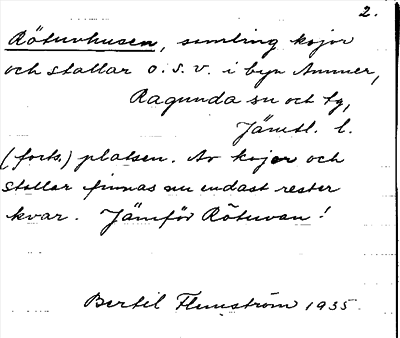 2.
Rötuvhusen, samling kojor
och stallar o.s.v. i byn Ammer,
Ragunda sn och tg,
Jämtl. l.
(forts.) platsen. Av kojor och
stallar finnas nu endast rester
kvar. Jämför Rötuvan!
Bertil Flemström 1935.